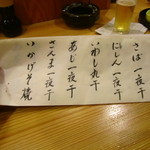 さば一夜干
にしん一夜干
いわし丸干
あじ一夜干
さんま一夜干
いかげそ焼